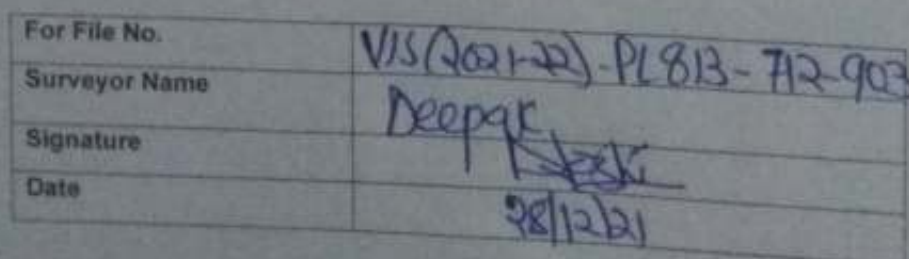 For File No. VIS(2021-22)-PL813-712-903
Surveyor Name Deepak
Signature
Date 28/12/21